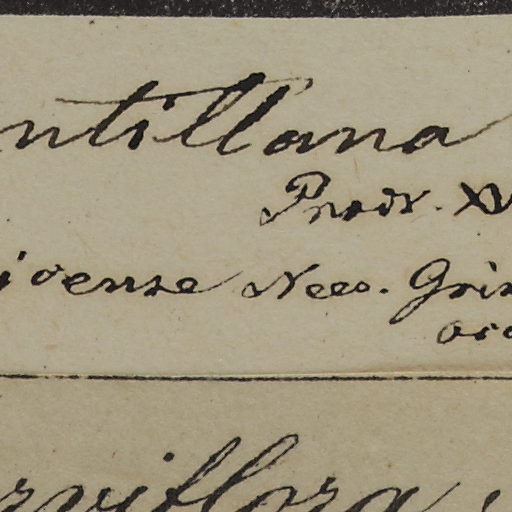 ntillana
Prodr. XV
icense Nees. Gris
arviflora